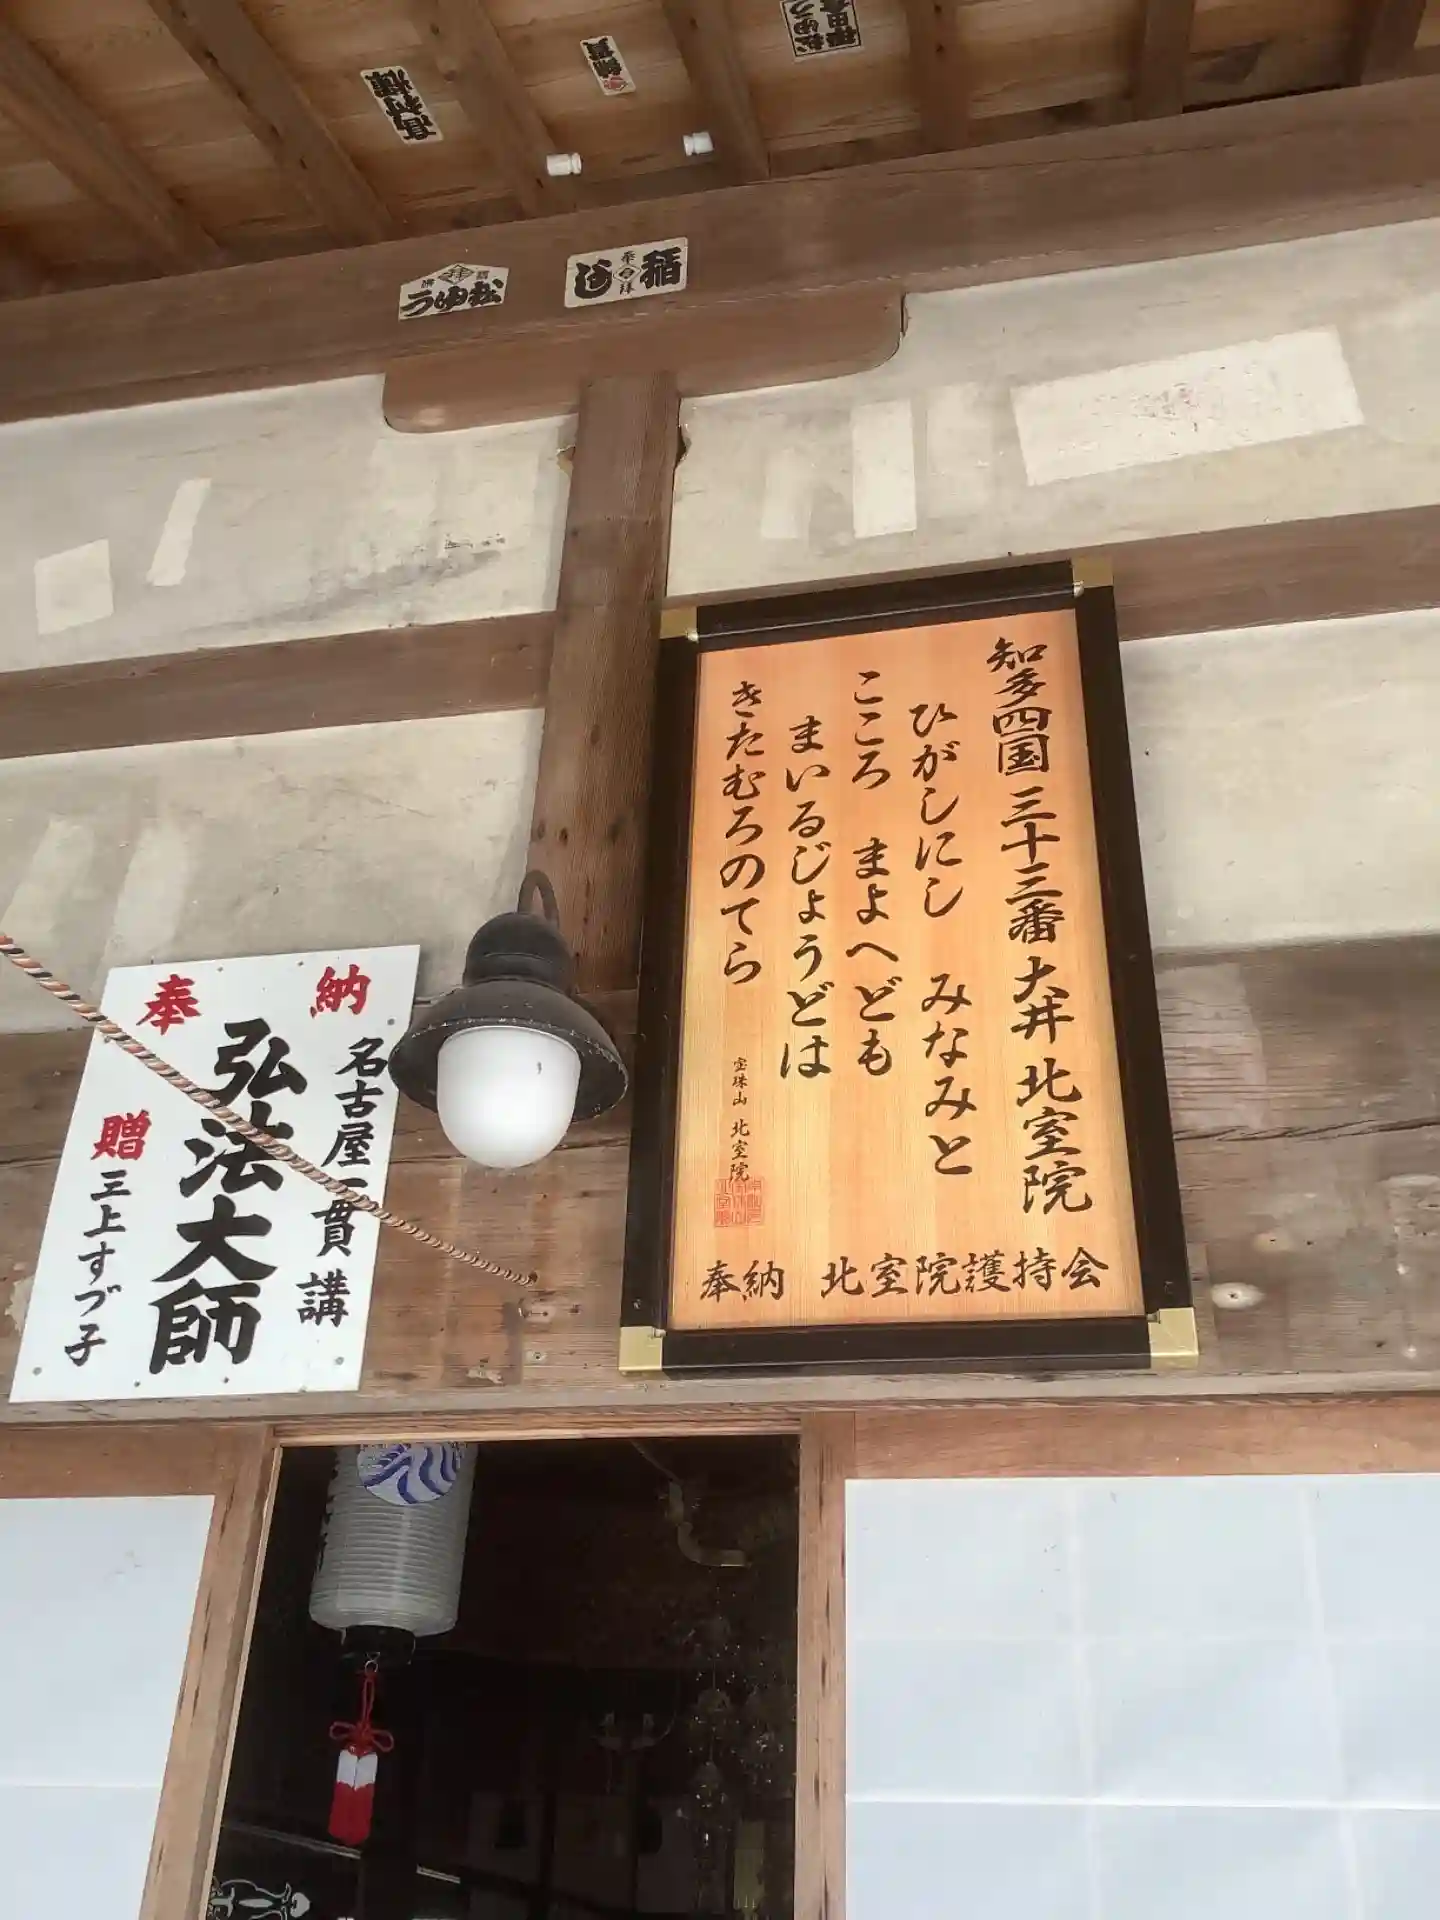 高村輝
稲
し
知多四国 三十三番 大井 北室院
ひがしにし みなみと
こころ まよへども
まいるじょうどは
きたむろのてら
宝珠山 北室院
奉納 北室院護持会
奉納
名古屋一貫講
弘法大師
贈 三上すづ子